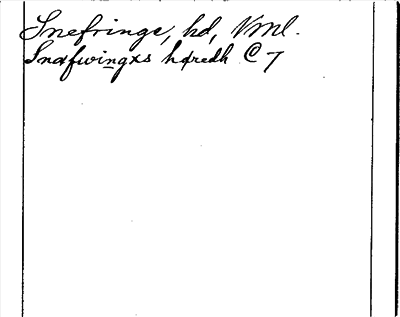 Snefringe, hd, Vml.
Snafwingxs hdredh C 7